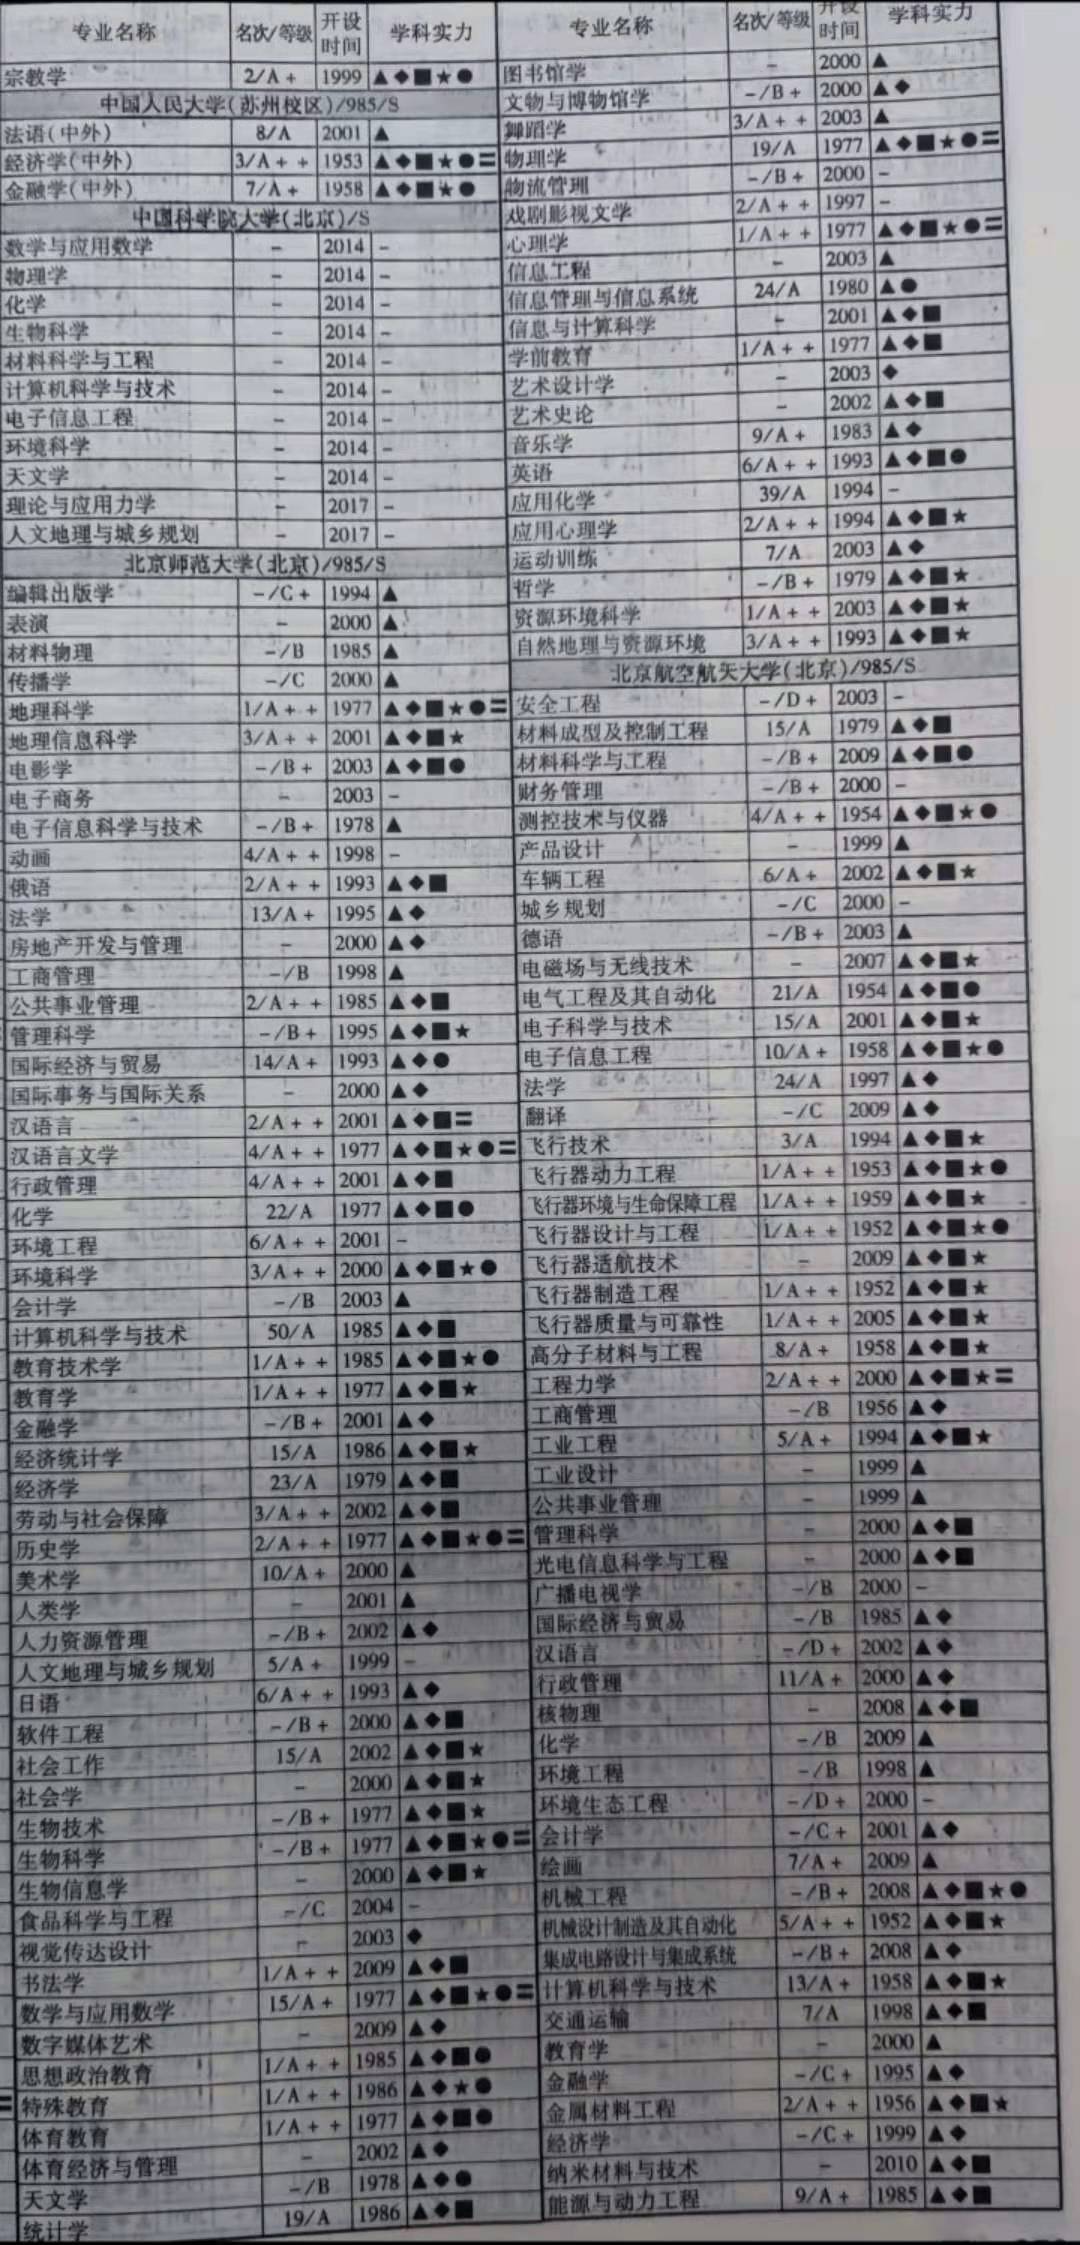 专业名称 名次/等级 开设时间 学科实力
宗教学 2/A+ 1999 ▲◆■★●
中国人民大学(苏州校区)/985/S
法语(中外) 8/A 2001 ▲
经济学(中外) 3/A++ 1953 ▲◆■★●〓
金融学(中外) 7/A+ 1958 ▲◆■★●
中国科学院大学(北京)/S
数学与应用数学 - 2014 -
物理学 - 2014 -
化学 - 2014 -
生物科学 - 2014 -
材料科学与工程 - 2014 -
计算机科学与技术 - 2014 -
电子信息工程 - 2014 -
环境科学 - 2014 -
天文学 - 2014 -
理论与应用力学 - 2017 -
人文地理与城乡规划 - 2017 -
北京师范大学(北京)/985/S
编辑出版学 -/C+ 1994 ▲
表演 - 2000 ▲
材料物理 -/B 1985 ▲
传播学 -/C 2000 ▲
地理科学 1/A++ 1977 ▲◆■★●〓
地理信息科学 3/A++ 2001 ▲◆■★
电影学 -/B+ 2003 ▲◆■●
电子商务 - 2003 -
电子信息科学与技术 -/B+ 1978 ▲
动画 4/A++ 1998 -
俄语 2/A++ 1993 ▲◆■
法学 13/A+ 1995 ▲◆
房地产开发与管理 - 2000 ▲◆
工商管理 -/B 1998 ▲
公共事业管理 2/A++ 1985 ▲◆■
管理科学 -/B+ 1995 ▲◆■★
国际经济与贸易 14/A+ 1993 ▲◆●
国际事务与国际关系 - 2000 ▲◆
汉语言 2/A++ 2001 ▲◆■〓
汉语言文学 4/A++ 1977 ▲◆■★●〓
行政管理 4/A++ 2001 ▲◆■
化学 22/A 1977 ▲◆■●
环境工程 6/A++ 2001 -
环境科学 3/A++ 2000 ▲◆■★●
会计学 -/B 2003 ▲
计算机科学与技术 50/A 1985 ▲◆■
教育技术学 1/A++ 1985 ▲◆■★●
教育学 1/A++ 1977 ▲◆■★
金融学 -/B+ 2001 ▲◆
经济统计学 15/A 1986 ▲◆■★
经济学 23/A 1979 ▲◆■
劳动与社会保障 3/A++ 2002 ▲◆■
历史学 2/A++ 1977 ▲◆■★●〓
美术学 10/A+ 2000 ▲
人类学 - 2001 ▲
人力资源管理 -/B+ 2002 ▲◆
人文地理与城乡规划 5/A+ 1999 -
日语 6/A++ 1993 ▲◆
软件工程 -/B+ 2000 ▲◆■
社会工作 15/A 2002 ▲◆■★
社会学 - 2000 ▲◆■★
生物技术 -/B+ 1977 ▲◆■★
生物科学 -/B+ 1977 ▲◆■★●〓
生物信息学 - 2000 ▲◆■★
食品科学与工程 -/C 2004 -
视觉传达设计 - 2003 ◆
书法学 1/A++ 2009 ▲◆■
数学与应用数学 15/A+ 1977 ▲◆■★●〓
数字媒体艺术 - 2009 ▲◆
思想政治教育 1/A++ 1985 ▲◆■●
特殊教育 1/A++ 1986 ▲◆★●
体育教育 1/A++ 1977 ▲◆■●
体育经济与管理 - 2002 ▲◆
天文学 -/B 1978 ▲◆●
统计学 19/A 1986 ▲◆■
专业名称 名次/等级 开设时间 学科实力
图书馆学 - 2000 ▲
文物与博物馆学 -/B+ 2000 ▲◆
舞蹈学 3/A++ 2003 ▲
物理学 19/A 1977 ▲◆■★●〓
物流管理 -/B+ 2000 -
戏剧影视文学 2/A++ 1997 -
心理学 1/A++ 1977 ▲◆■★●〓
信息工程 - 2003 ▲
信息管理与信息系统 24/A 1980 ▲●
信息与计算科学 - 2001 ▲◆■
学前教育 1/A++ 1977 ▲◆■
艺术设计学 - 2003 ◆
艺术史论 - 2002 ▲◆■
音乐学 9/A+ 1983 ▲◆
英语 6/A++ 1993 ▲◆■●
应用化学 39/A 1994 -
应用心理学 2/A++ 1994 ▲◆■★
运动训练 7/A 2003 ▲◆
哲学 -/B+ 1979 ▲◆■★
资源环境科学 1/A++ 2003 ▲◆■★
自然地理与资源环境 3/A++ 1993 ▲◆■★
北京航空航天大学(北京)/985/S
安全工程 -/D+ 2003 -
材料成型及控制工程 15/A 1979 ▲◆■
材料科学与工程 -/B+ 2009 ▲◆■●
财务管理 -/B+ 2000 -
测控技术与仪器 4/A++ 1954 ▲◆■★●
产品设计 - 1999 ▲
车辆工程 6/A+ 2002 ▲◆■★
城乡规划 -/C 2000 -
德语 -/B+ 2003 ▲
电磁场与无线技术 - 2007 ▲◆■★
电气工程及其自动化 21/A 1954 ▲◆■●
电子科学与技术 15/A 2001 ▲◆■★
电子信息工程 10/A+ 1958 ▲◆■★●
法学 24/A 1997 ▲◆
翻译 -/C 2009 ▲◆
飞行技术 3/A 1994 ▲◆■★
飞行器动力工程 1/A++ 1953 ▲◆■★●
飞行器环境与生命保障工程 1/A++ 1959 ▲◆■★
飞行器设计与工程 1/A++ 1952 ▲◆■★●
飞行器适航技术 - 2009 ▲◆■★
飞行器制造工程 1/A++ 1952 ▲◆■★
飞行器质量与可靠性 1/A++ 2005 ▲◆■★
高分子材料与工程 8/A+ 1958 ▲◆■★
工程力学 2/A++ 2000 ▲◆■★〓
工商管理 -/B 1956 ▲◆
工业工程 5/A+ 1994 ▲◆■★
工业设计 - 1999 ▲
公共事业管理 - 1999 ▲
管理科学 - 2000 ▲◆■
光电信息科学与工程 - 2000 ▲◆■
广播电视学 -/B 2000 -
国际经济与贸易 -/B 1985 ▲◆
汉语言 -/D+ 2002 ▲◆
行政管理 11/A+ 2000 ▲◆
核物理 - 2008 ▲◆■
化学 -/B 2009 ▲
环境工程 -/B 1998 ▲
环境生态工程 -/D+ 2000 -
会计学 -/C+ 2001 ▲◆
绘画 7/A+ 2009 ▲
机械工程 -/B+ 2008 ▲◆■★●
机械设计制造及其自动化 5/A++ 1952 ▲◆■★
集成电路设计与集成系统 -/B+ 2008 ▲◆
计算机科学与技术 13/A+ 1958 ▲◆■★
交通运输 7/A 1998 ▲◆■
教育学 - 2000 ▲
金融学 -/C+ 1995 ▲◆
金属材料工程 2/A++ 1956 ▲◆■★
经济学 -/C+ 1999 ▲◆
纳米材料与技术 - 2010 ▲◆■
能源与动力工程 9/A+ 1985 ▲◆■